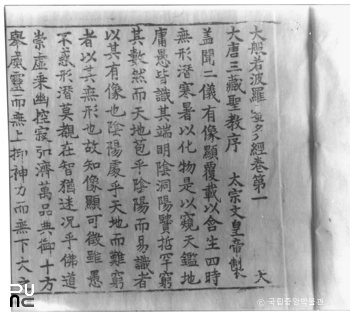 大般若波羅蜜多經卷第一
大唐三藏聖教序 太宗文皇帝製 大
盖聞二儀有像顯覆載以含生四時
無形潛寒暑以化物是以窺天鑑地
庸愚皆識其端明陰洞陽賢哲罕窮
其數然而天地苞乎陰陽而易識者
以其有像也陰陽處乎天地而難窮
者以其無形也故知像顯可徵雖愚
不惑形潛莫覩在智猶迷况乎佛道
崇虛乗幽控寂弘濟萬品典御十方
舉威靈而無上抑神力而無下大之
국립중앙박물관